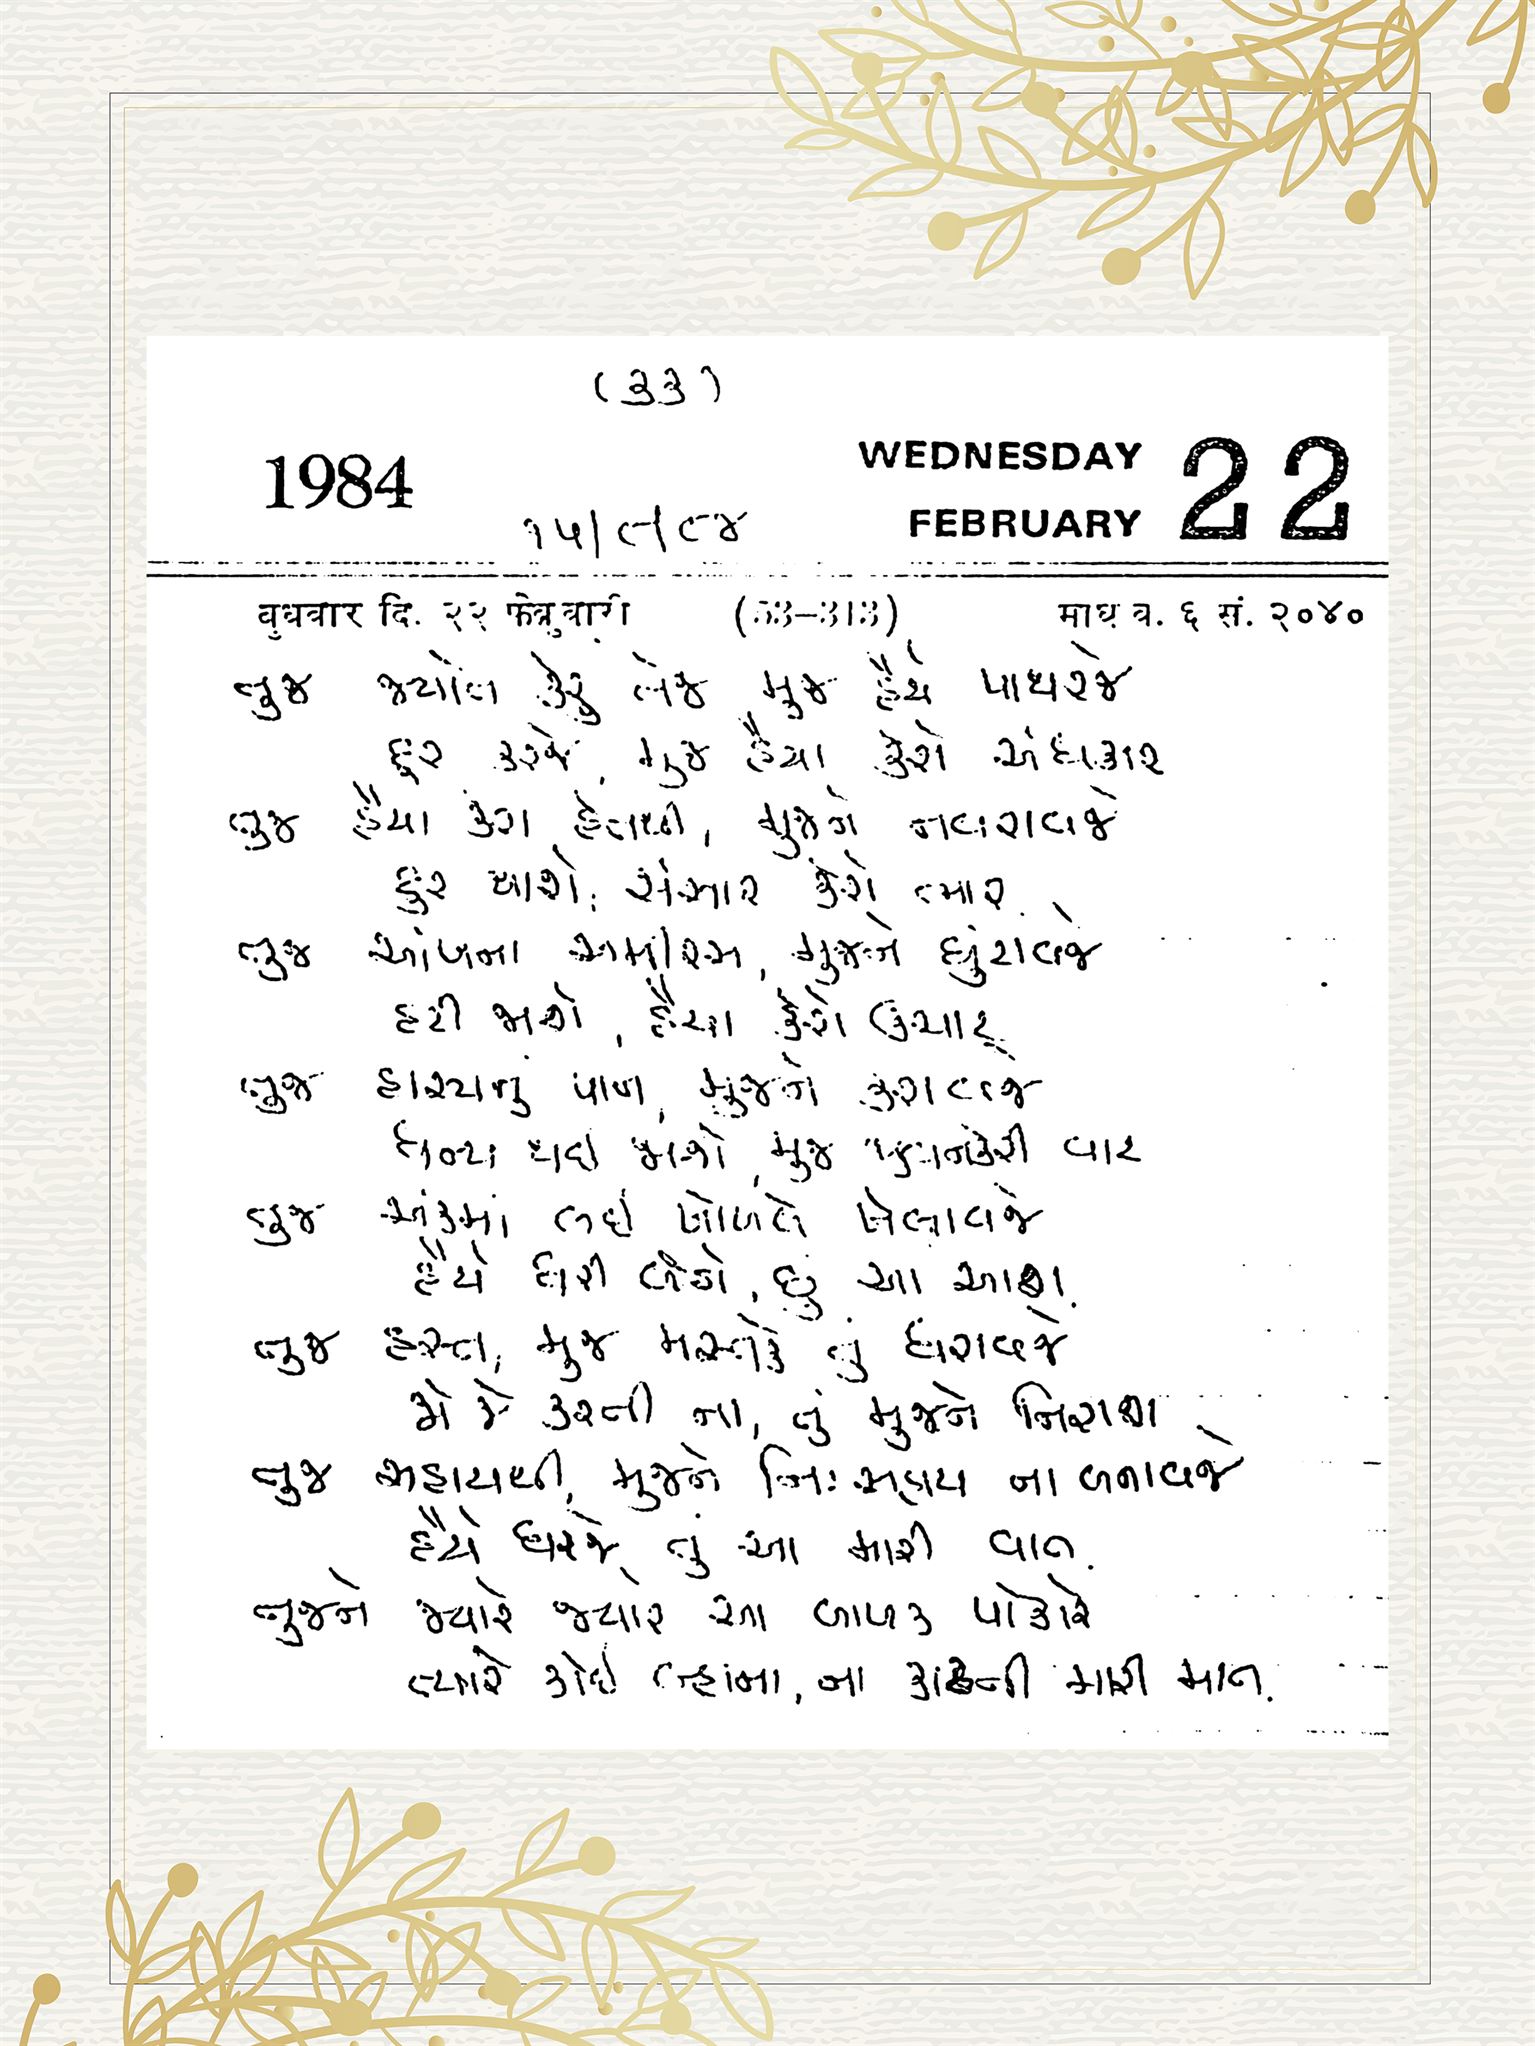 (૩૩)
1984
WEDNESDAY 22
FEBRUARY
૧૫/૮/૮૪
बुधवार दि. २२ फेब्रुवारी (53-313) माघ व. ६ सं. २०४०
તુજ જ્યોતિ કેરું તેજ મુજ હૈયે પાથરજે
દુર કરજે, મુજ હૈયા કેરો અંધકાર
તુજ હૈયા કેરા હેતથી, મુજને નવરાવજે
દુર થાશે, સંસાર કેરો માર
તુજ આંખના અમીરસ, મુજને ઘુંટાવજે
હટી જાશે, હૈયા કેરો ઉચાટ
તુજ હાસ્યનું પાન, મુજને કરાવજે
ધન્ય થઈ જાશે મુજ વાર
તુજ અંકમાં લઈ ખોળલે ખેલાવજે
હૈયે ધરી બેઠો, છું આ આશ.
તુજ હસ્ત, મુજ મસ્તકે તું ધરાવજે
જો જે કરતી ના, તું મુજને નિરાશ
તુજ સહાયથી, મુજને નિઃસહાય ના બનાવજે
હૈયે ધરજે તું આ મારી વાત.
તુજને જ્યારે જ્યારે આ બાળક પોકારે
ત્યારે કોઈ બ્હાંના, ના કાઢતી મારી માત.